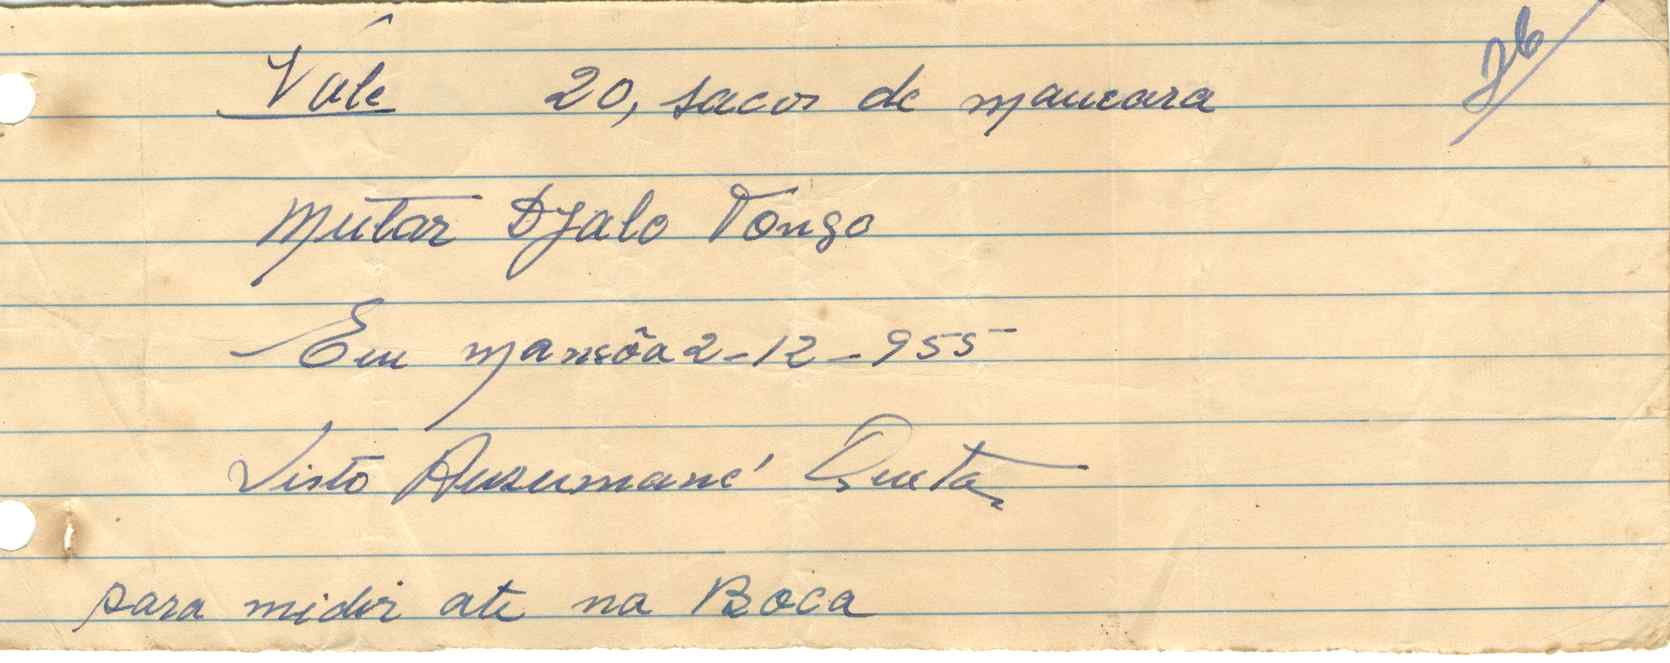 Vâle 20, sacos de mancara
26
Mutar Djalo Tongo
Em mansôa 2-12-955
Visto Ansumané Queta
para midir ate na Boca